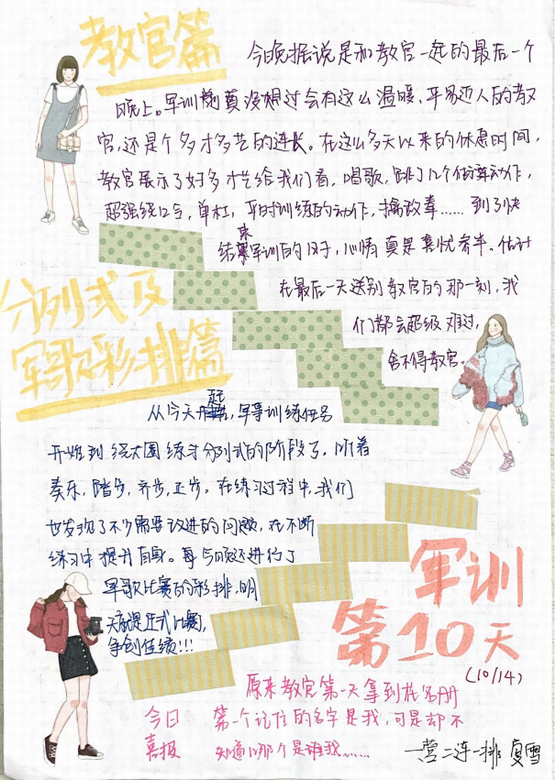 教官篇
今晚据说是和教官一起的最后一个
晚上。军训真没想过会有这么温暖、平易近人的教
官,还是个多才多艺的连长。在这么多天以来的休息时间,
教官展示了好多才艺给我们看,唱歌,跳了几个体操动作,
超强绕口令,单杠,平时训练的动作,擒敌拳……到了快
结束军训的日子,心情真是喜忧参半。估计
在最后一天送别教官的那一刻,我
们都会超级难过,
舍不得教官。
分列式及
军歌彩排篇
从今天起,军事训练任务
开始到绕大圈练习分列式的阶段了。听着
奏乐,踏步,齐步,正步。在练习过程中,我们
也发现了不少需要改进的问题,在不断
练习中提升自身。每与晚还进行了
军歌比赛的彩排,明
天就是正式比赛,
争创佳绩!!!
军训
第10天
(10/14)
原来教官第一天拿到花名册
今日 第一个记住的名字是我,可是却不
喜报 知道哪个是谁我……
一营二连一排 夏雪